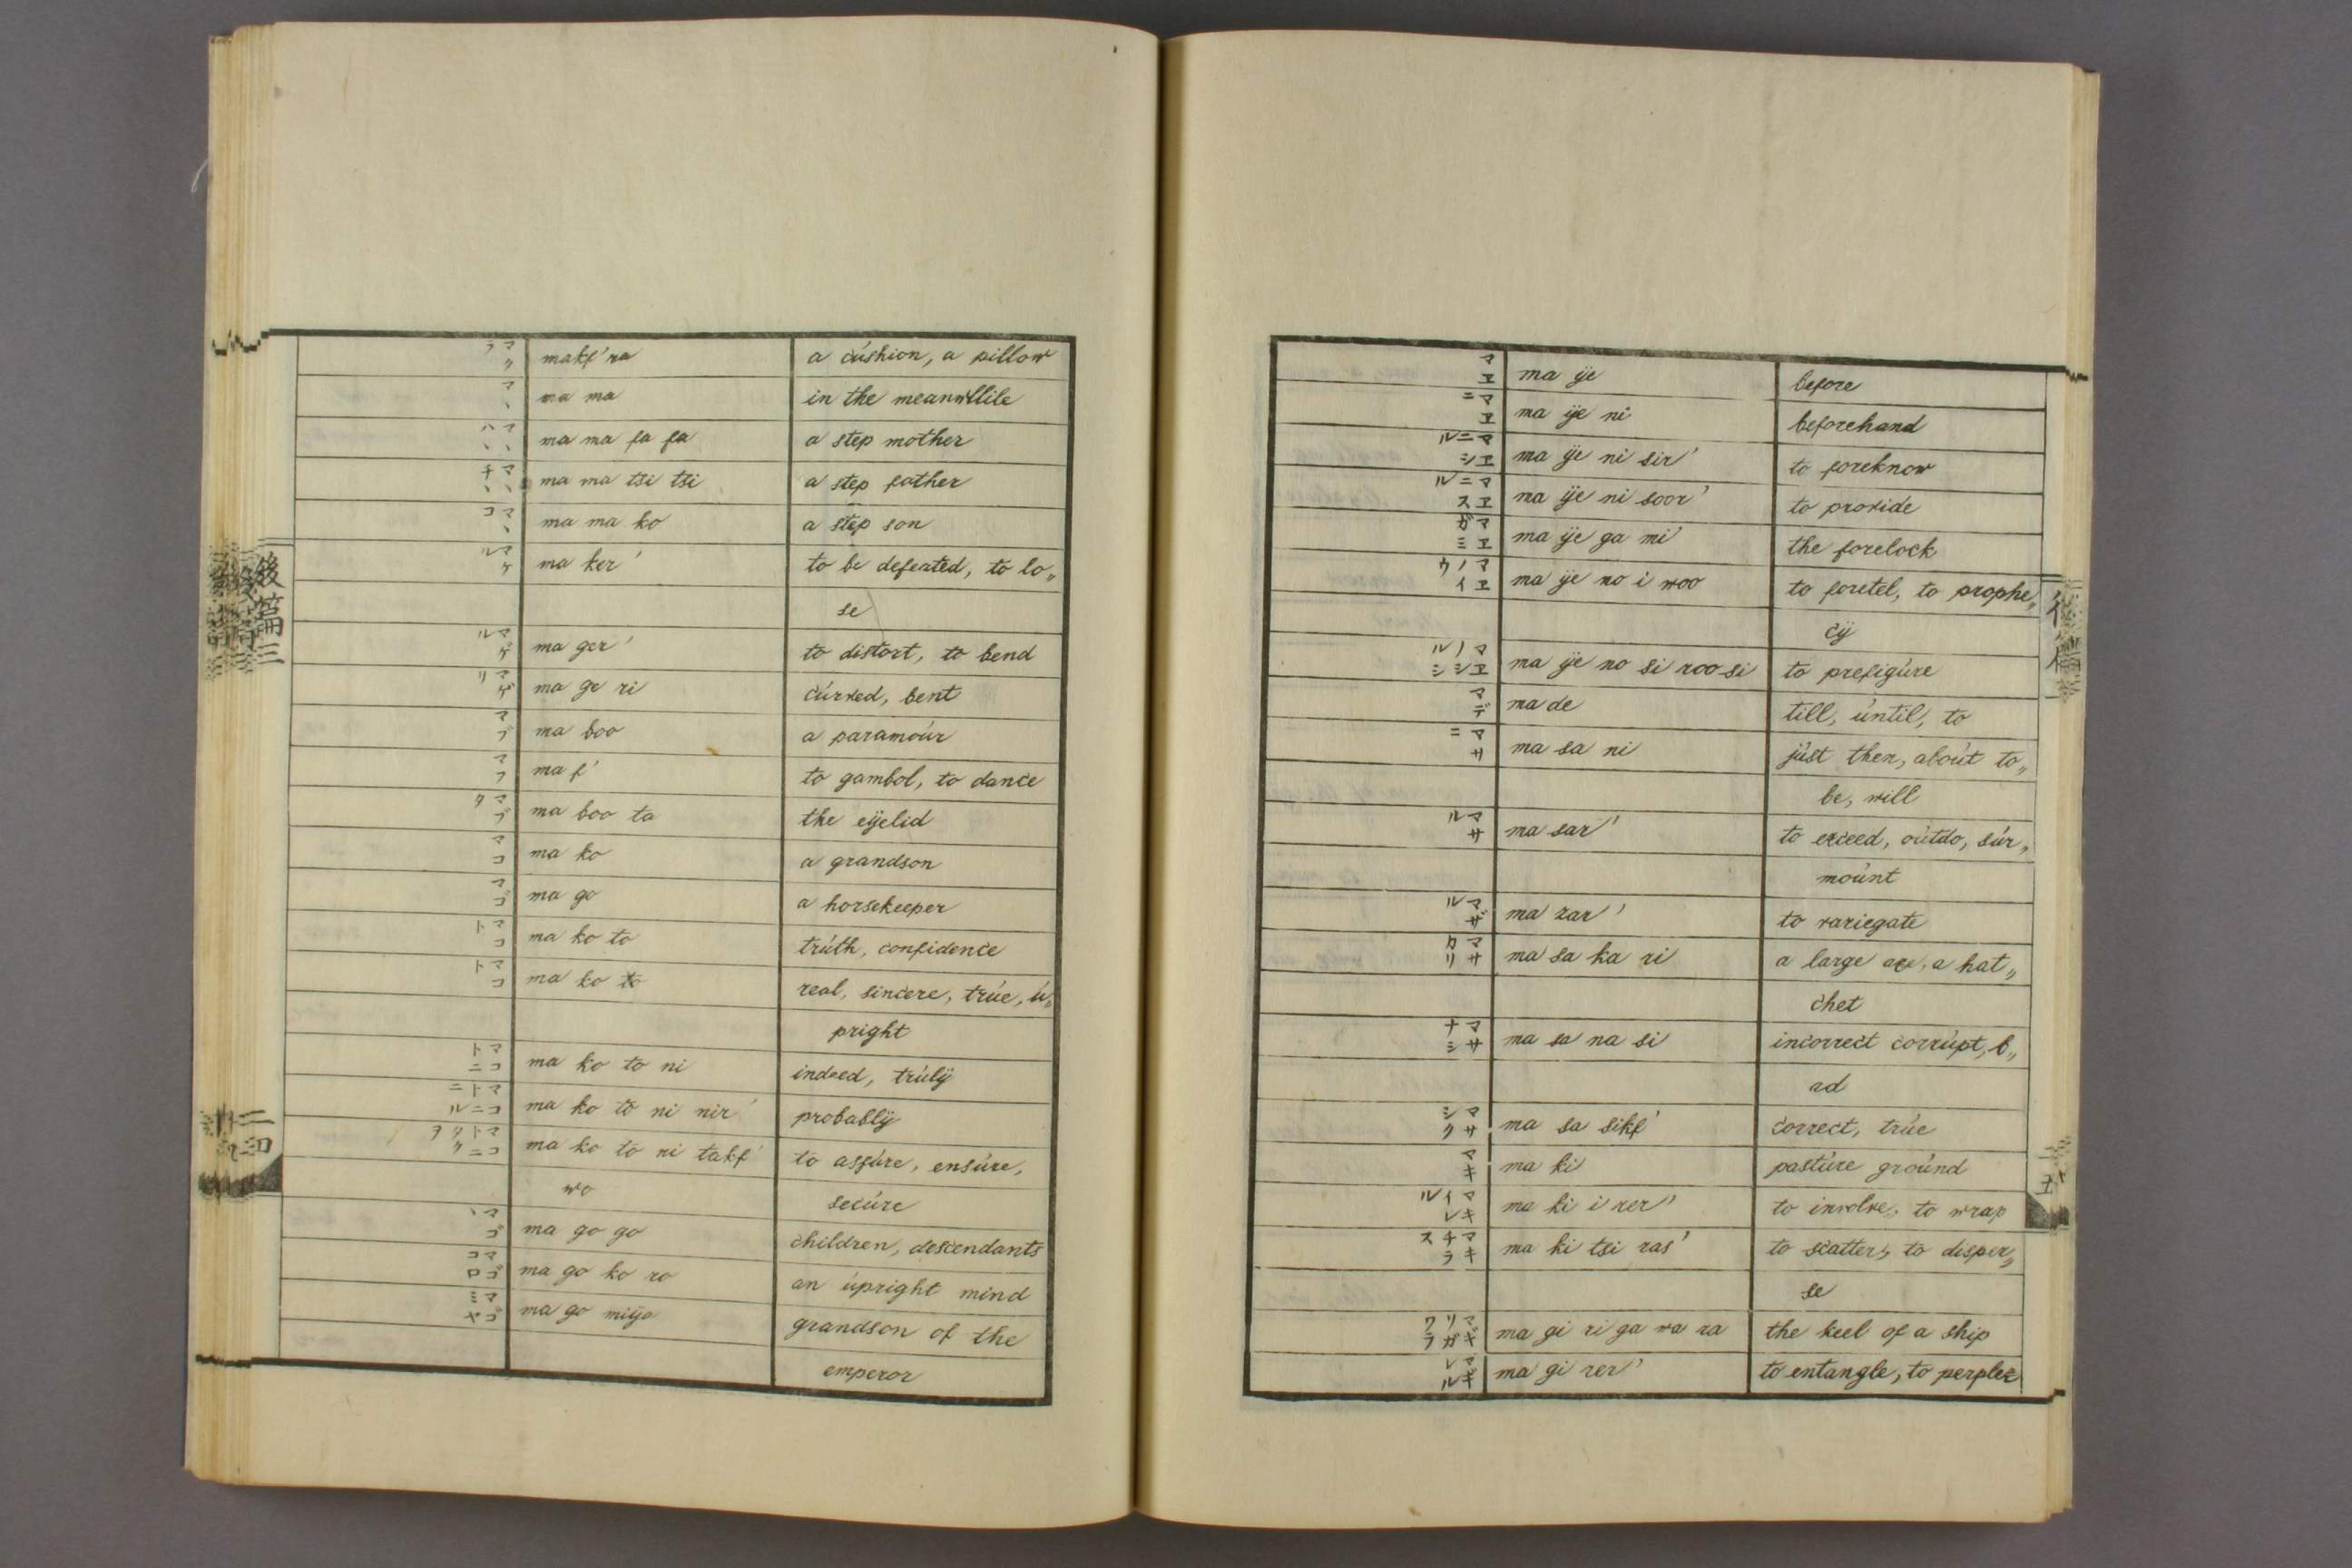 マヱ ma ÿe before
マヱニ ma ÿe ni beforehand
マヱニシル ma ÿe ni sir' to foreknow
マヱニスル ma ÿe ni soor' to provide
マヱガミ ma ÿe ga mi the forelock
マヱノイウ ma ÿe no i woo to foretel, to prophe„
cÿ
マヱノシルシ ma ÿe no si roo si to prefigúre
マデ ma de till, úntil, to
マサニ ma sa ni júst then, aboút to„
be, will
マサル ma sar' to exceed, oútdo, súr„
moúnt
マザル ma zar' to variegate
マサカリ ma sa ka ri a large axe, a hat„
chet
マサナシ ma sa na si incorrect corrúpt, b„
ad
マサシク ma sa sikf' correct, trúe
マキ ma ki pastúre groúnd
マキイレル ma ki i rer' to involve, to wrap
マキチラス ma ki tsi ras' to scatter, to disper„
se
マギリガワラ ma gi ri ga wa ra the keel of a ship
マギレル ma gi rer' to entangle, to perplex
マクラ makf'ra a cúshion, a pillow
マヽ ma ma in the meanwhile
マヽハヽ ma ma fa fa a step mother
マヽチヽ ma ma tsi tsi a step father
マヽコ ma ma ko a step son
マケル ma ker' to be defeated, to lo„
se
マゲル ma ger' to distort, to bend
マゲリ ma ge ri cúrved, bent
マブ ma boo a paramoúr
マフ ma f' to gambol, to dance
マブタ ma boo ta the eÿelid
マコ ma ko a grandson
マゴ ma go a horsekeeper
マコト ma ko to trúth, confidence
マコト ma ko to real, sincere, trúe, ú„
pright
マコトニ ma ko to ni indeed, trúlÿ
マコトニニル ma ko to ni nir' probablÿ
マコトニタクヲ ma ko to ni takf' to assúre, ensúre,
wo secúre
マゴヽ ma go go children, descendants
マゴコロ ma go ko ro an úpright mind
マゴミヤ ma go miÿa grandson of the
emperor
後篇三